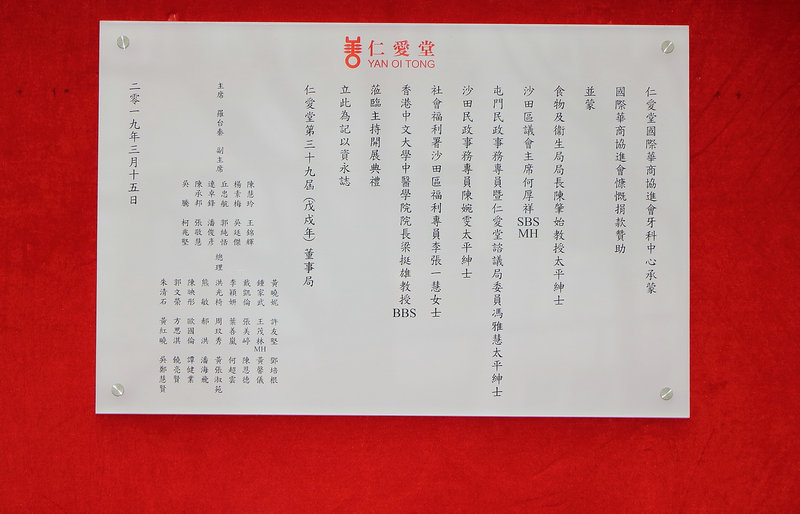 仁愛堂
YAN OI TONG
仁愛堂國際華商協進會牙科中心承蒙
國際華商協進會慷慨捐款贊助
並蒙
食物及衞生局局長陳肇始教授太平紳士
沙田區議會主席何厚祥SBS MH
屯門民政事務專員暨仁愛堂諮議局委員馮雅慧太平紳士
沙田民政事務專員陳婉雯太平紳士
社會福利署沙田區福利專員李張一慧女士
香港中文大學中醫學院院長梁挺雄教授BBS
蒞臨主持開展典禮
立此為記以資永誌
仁愛堂第三十九屆（戊戌年）董事局
主席 羅台秦 副主席
陳慧玲 王錦輝
楊素梅 吳廷傑
丘忠航 郭純恬
逄卓鋒 潘俊彥
陳承邦 張敬慧
吳騰 柯兆堅
總理
黃曉妮 許友堅 鄧培根
鍾家武 王茂林MH 黃馨儀
戴凱倫 張美婷 陳恩德
李穎妍 葉善嵐 何超雲
洪光椅 周玟秀 黃張淑苑
熊敏 郝洪 潘海飛
陳映彤 歐國倫 譚健業
郭文榮 方思淇 饒亮賢
朱清石 黃紅曉 吳鄭慧賢
二零一九年三月十五日